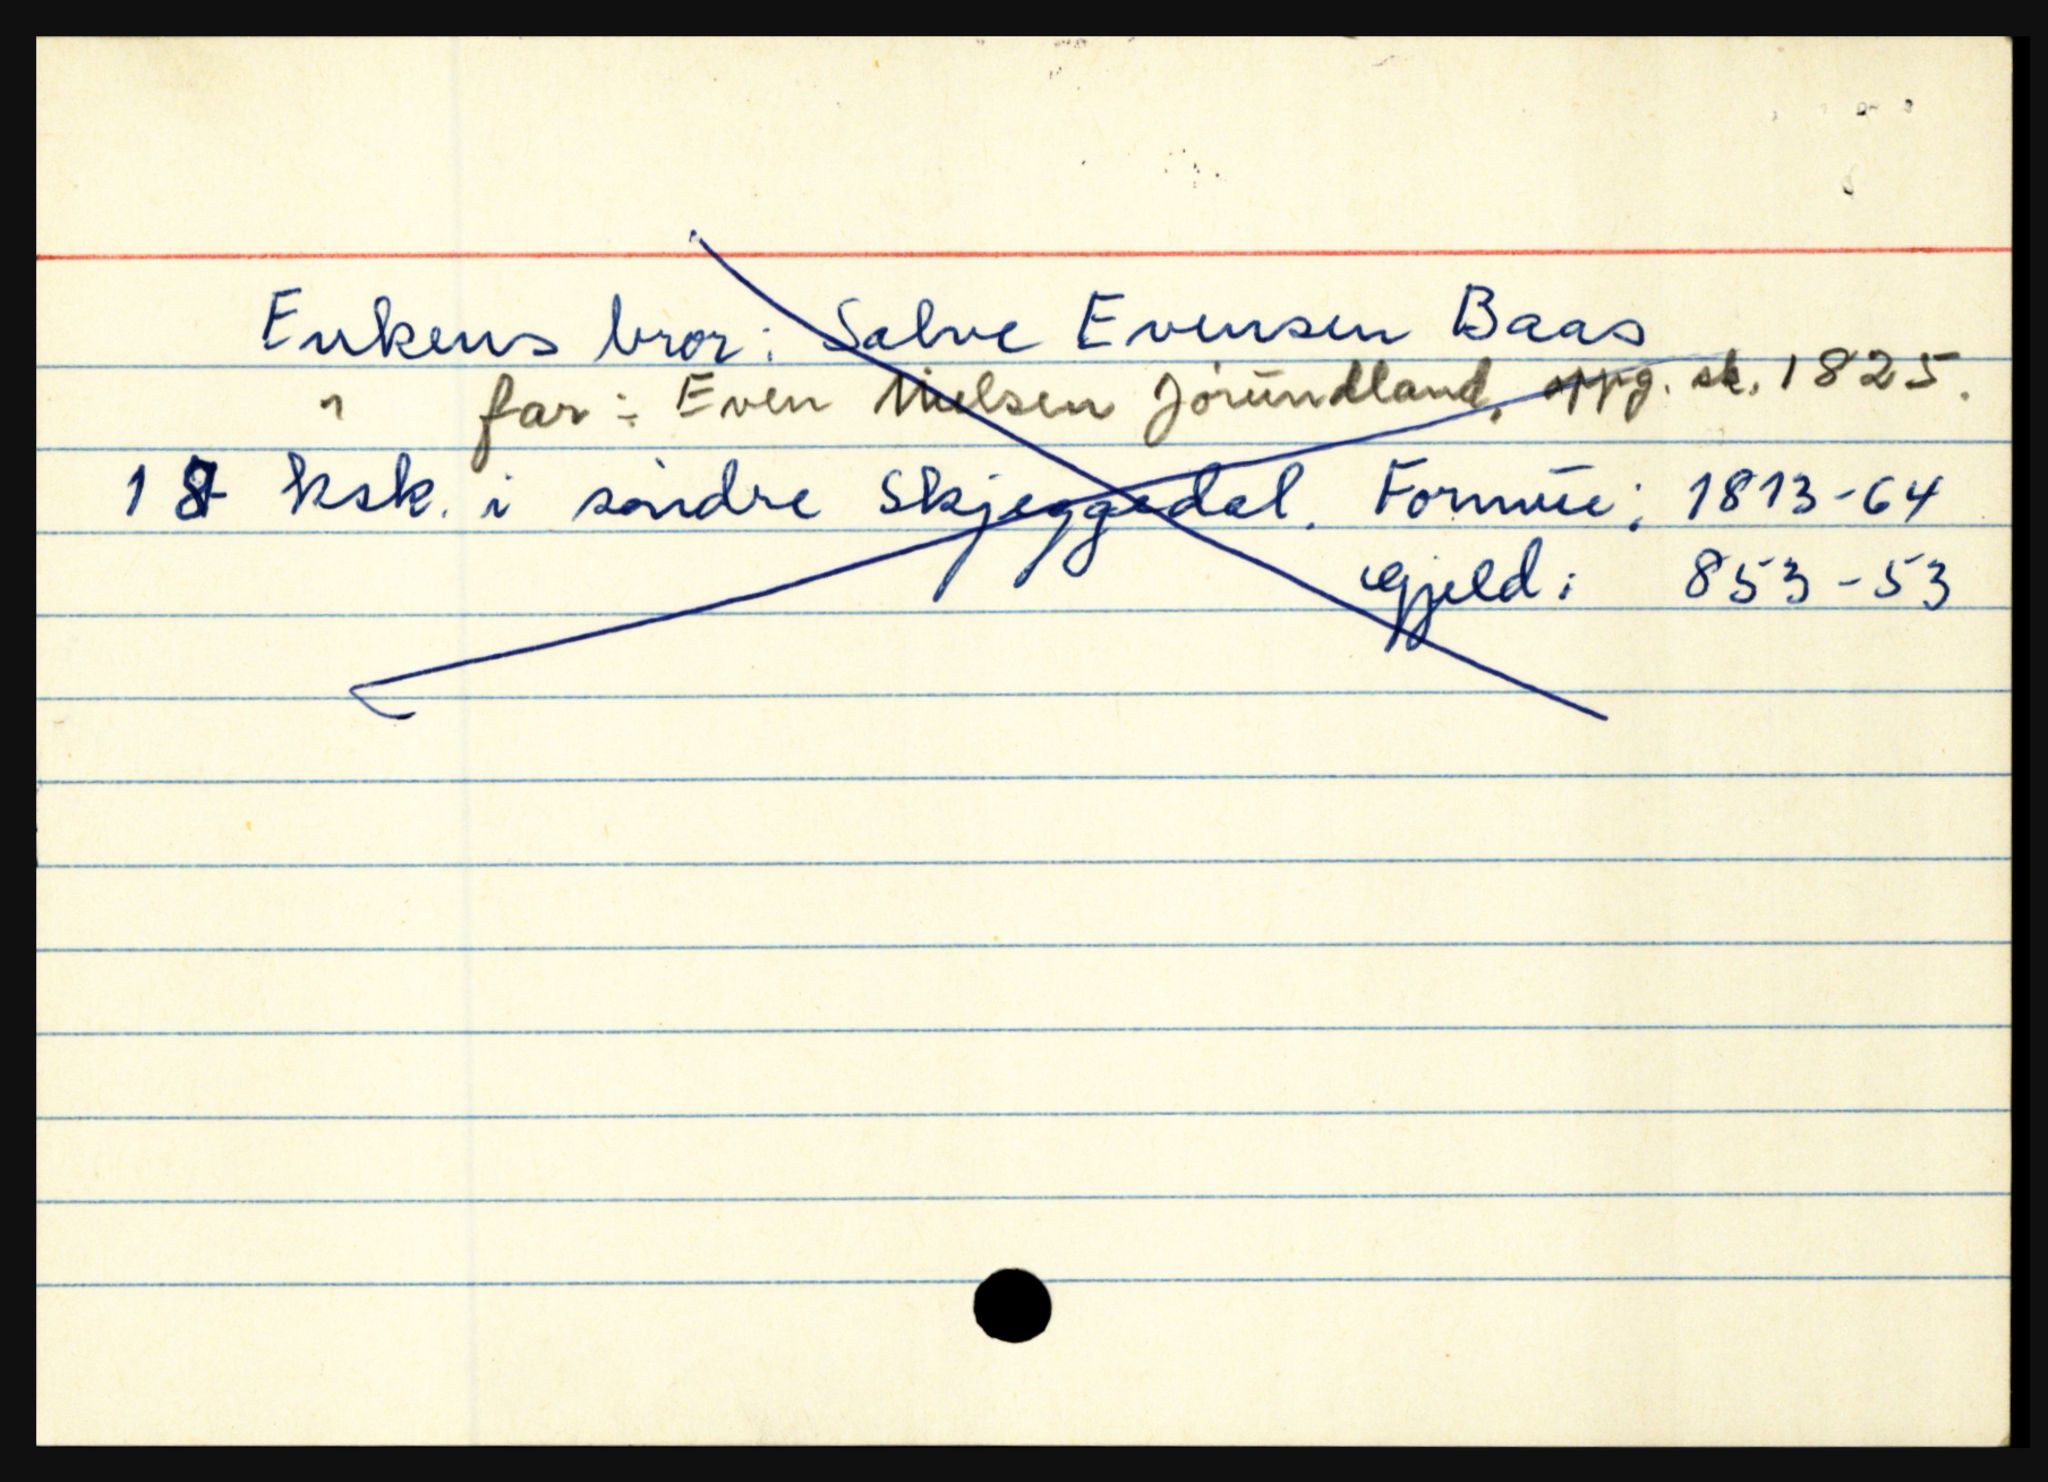 Enkens bror: Salve Evensen Baas
" far: Even Nielsen Jörundland, oppg. sk. 1825.
ksk. i söndre Skjeggedal. Formue: 1813-64
Gjeld: 853-53